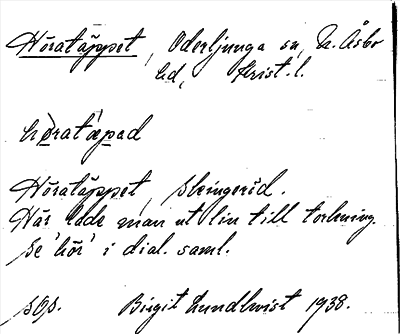 Höratäppet, Oderljunga sn, N. Åsbo
hd, Krist. l.
Höratäppet,
Här lade man ut lin till torkning.
Se 'hör' i dial. saml.
sOs. Birgit Lundkvist 1938.